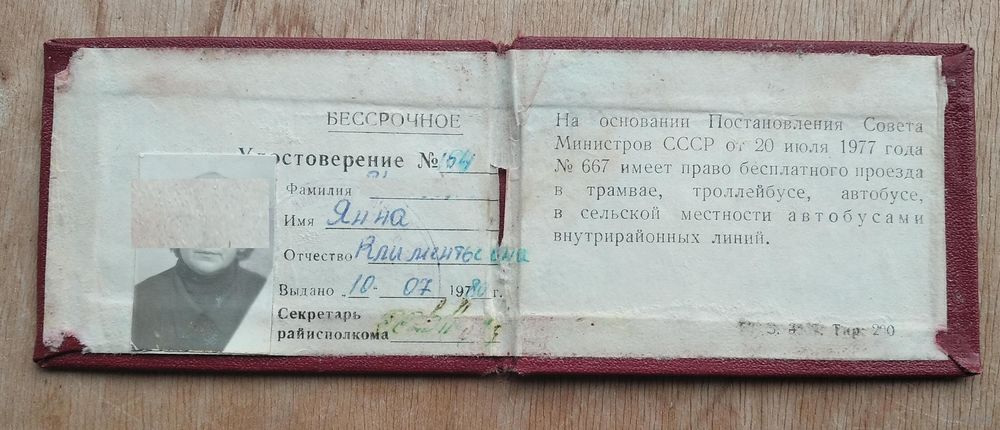 БЕССРОЧНОЕ
Удостоверение №154
Фамилия
Имя Янна
Отчество Климентьевна
Выдано „10- 07 1980 г.
Секретарь
райисполкома
На основании Постановления Совета
Министров СССР от 20 июля 1977 года
№ 667 имеет право бесплатного проезда
в трамвае, троллейбусе, автобусе,
в сельской местности автобусами
внутрирайонных линий.
Тир.